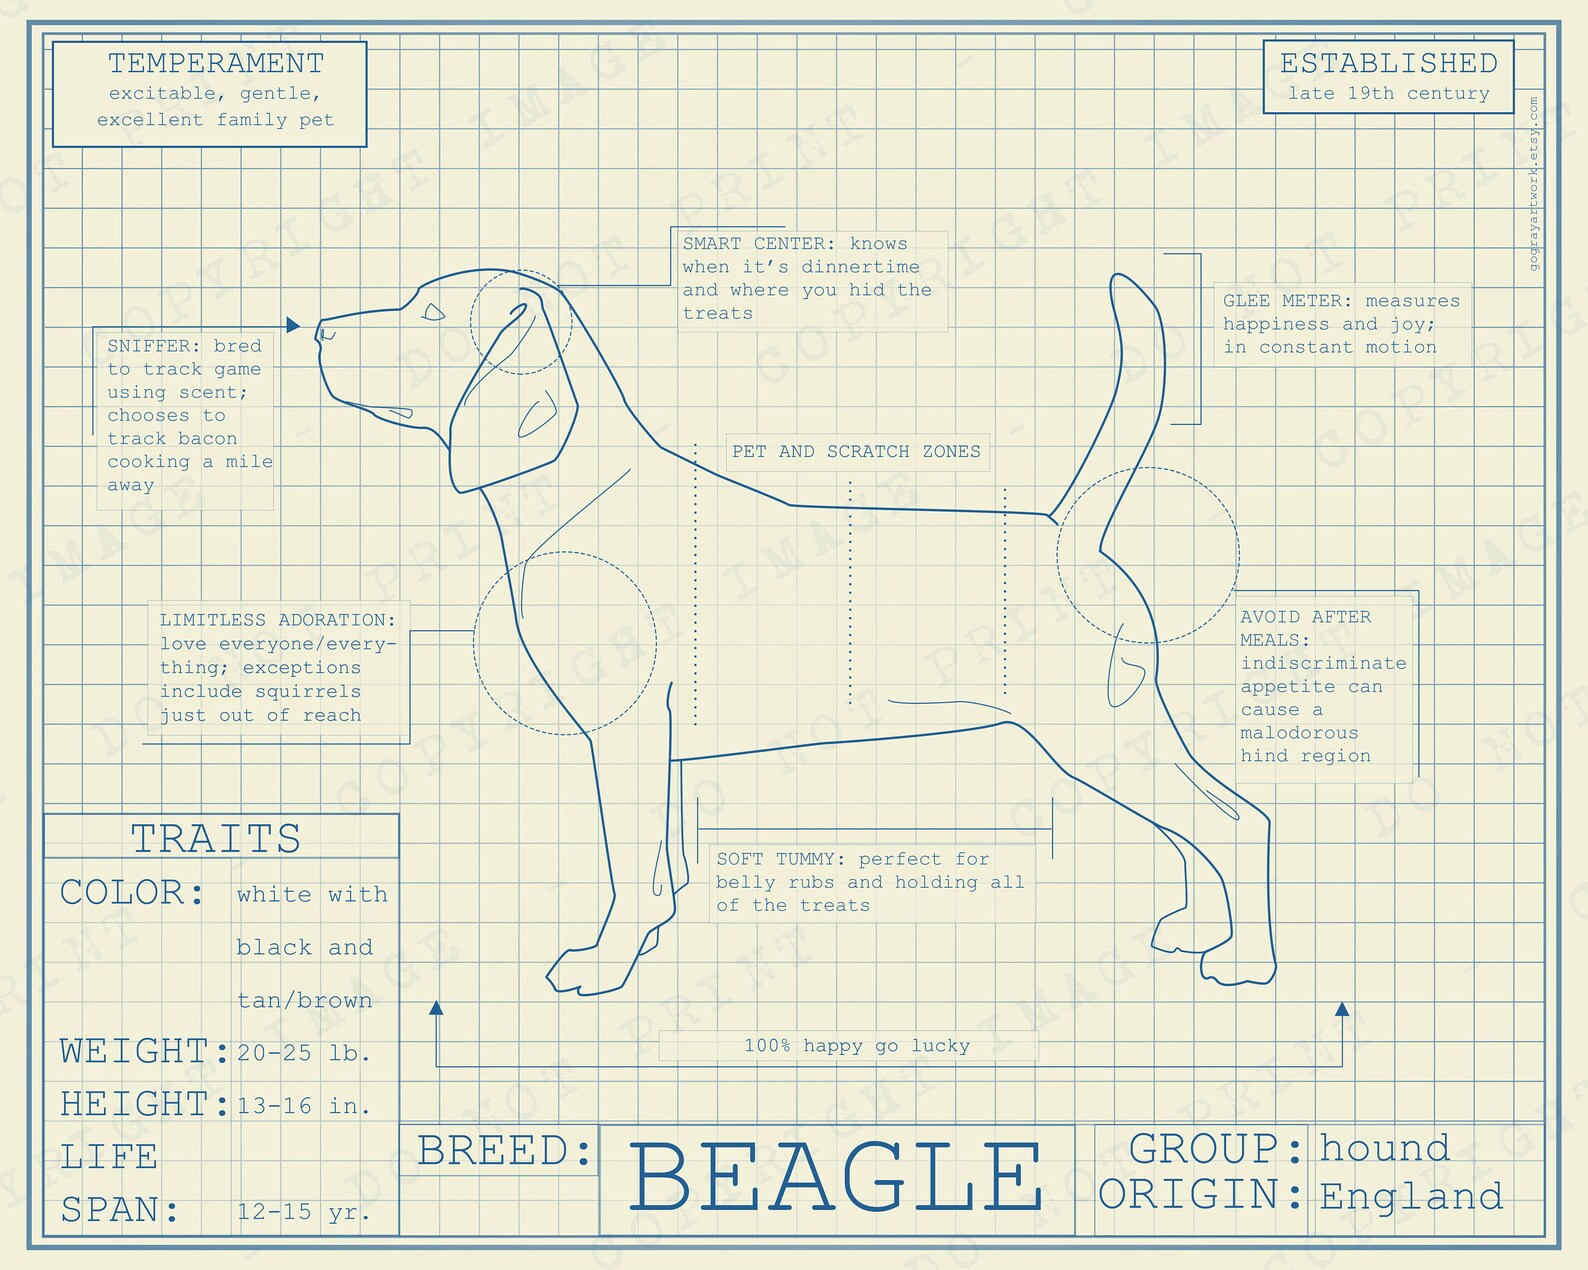 TEMPERAMENT
excitable, gentle,
excellent family pet
ESTABLISHED
late 19th century
gograyartwork.etsy.com
SMART CENTER: knows
when it’s dinnertime
and where you hid the
treats
GLEE METER: measures
happiness and joy;
in constant motion
SNIFFER: bred
to track game
using scent;
chooses to
track bacon
cooking a mile
away
PET AND SCRATCH ZONES
LIMITLESS ADORATION:
love everyone/every-
thing; exceptions
include squirrels
just out of reach
AVOID AFTER
MEALS:
indiscriminate
appetite can
cause a
malodorous
hind region
SOFT TUMMY: perfect for
belly rubs and holding all
of the treats
100% happy go lucky
TRAITS
COLOR: white with
black and
tan/brown
WEIGHT: 20-25 lb.
HEIGHT: 13-16 in.
LIFE
SPAN: 12-15 yr.
BREED: BEAGLE
GROUP: hound
ORIGIN: England
COPYRIGHT IMAGE - DO NOT PRINT